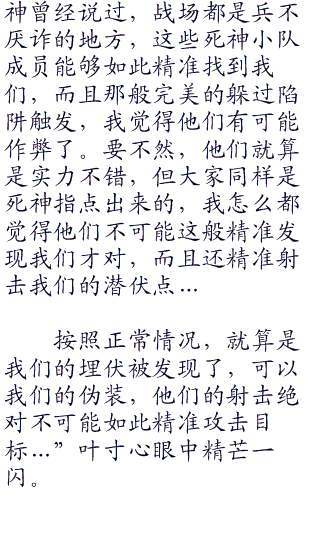 神曾经说过，战场都是兵不
厌诈的地方，这些死神小队
成员能够如此精准找到我
们，而且那般完美的躲过陷
阱触发，我觉得他们有可能
作弊了。要不然，他们就算
是实力不错，但大家同样是
死神指点出来的，我怎么都
觉得他们不可能这般精准发
现我们才对，而且还精准射
击我们的潜伏点…
按照正常情况，就算是
我们的埋伏被发现了，可以
我们的伪装，他们的射击绝
对不可能如此精准攻击目
标…”叶寸心眼中精芒一
闪。